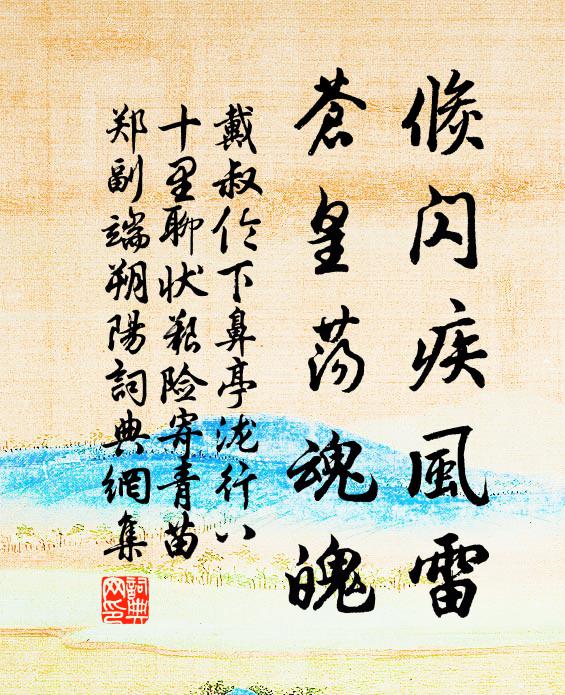 倏闪疾風雷
蒼皇荡魂魄
戴叔伦下鼻亭泷行八
十里聊状艰险寄青苗
郑副端朔陽詞典網集
詞典
网印